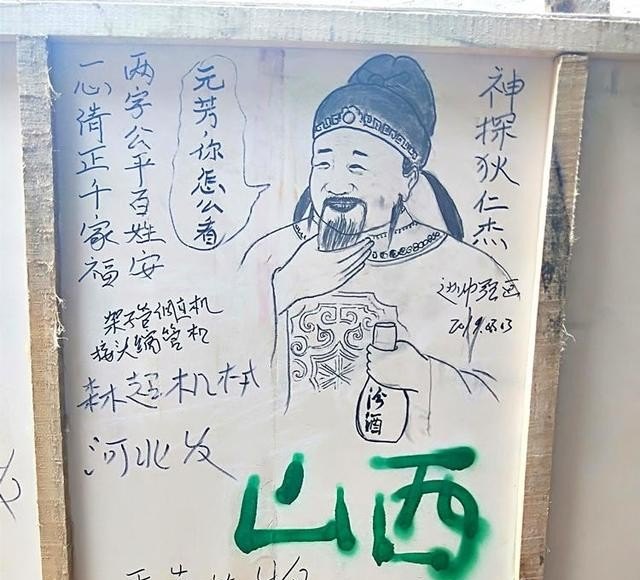 神探狄仁杰
元芳，你怎么看
两字公平百姓安
一心清正千家福
架子管调直机
接头缩管机
森超机械
河北发
山西
汾酒
2019.03.03